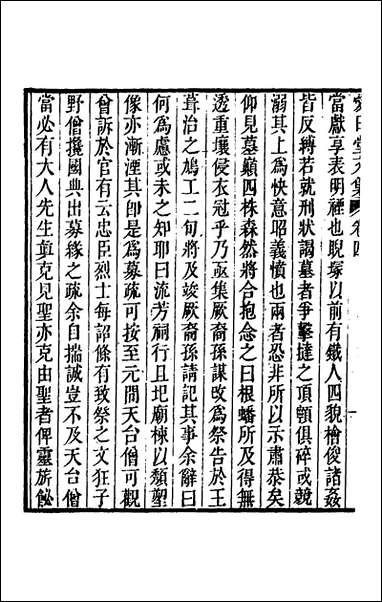 愛日堂文集卷四
當獻享表明禋也睨塚以前有鐵人四貌檜俊諸姦
皆反縛若就刑狀謁墓者爭擊撻之頂顖俱碎或競
溺其上為快意昭義憤也兩者恐非所以示肅恭矣
仰見墓巔四株森然將合抱念之曰根蟠所及得無
透重壤侵衣冠乎乃亟集厥裔孫謀改為祭告於王
葺治之鳩工二旬將及竣厥裔孫請記其事余辭曰
何為慮或未之知耶曰流芳祠行且圯廟棟以頹塑
像亦漸湮其卽是為募疏可按至元間天台僧可觀
曾訴於官有云忠臣烈士每詔條有致祭之文狂子
野僧撰國典出募緣之疏余自揣誠豈不及天台僧
當必有大人先生寘克見聖亦克由聖者俾靈旂飶